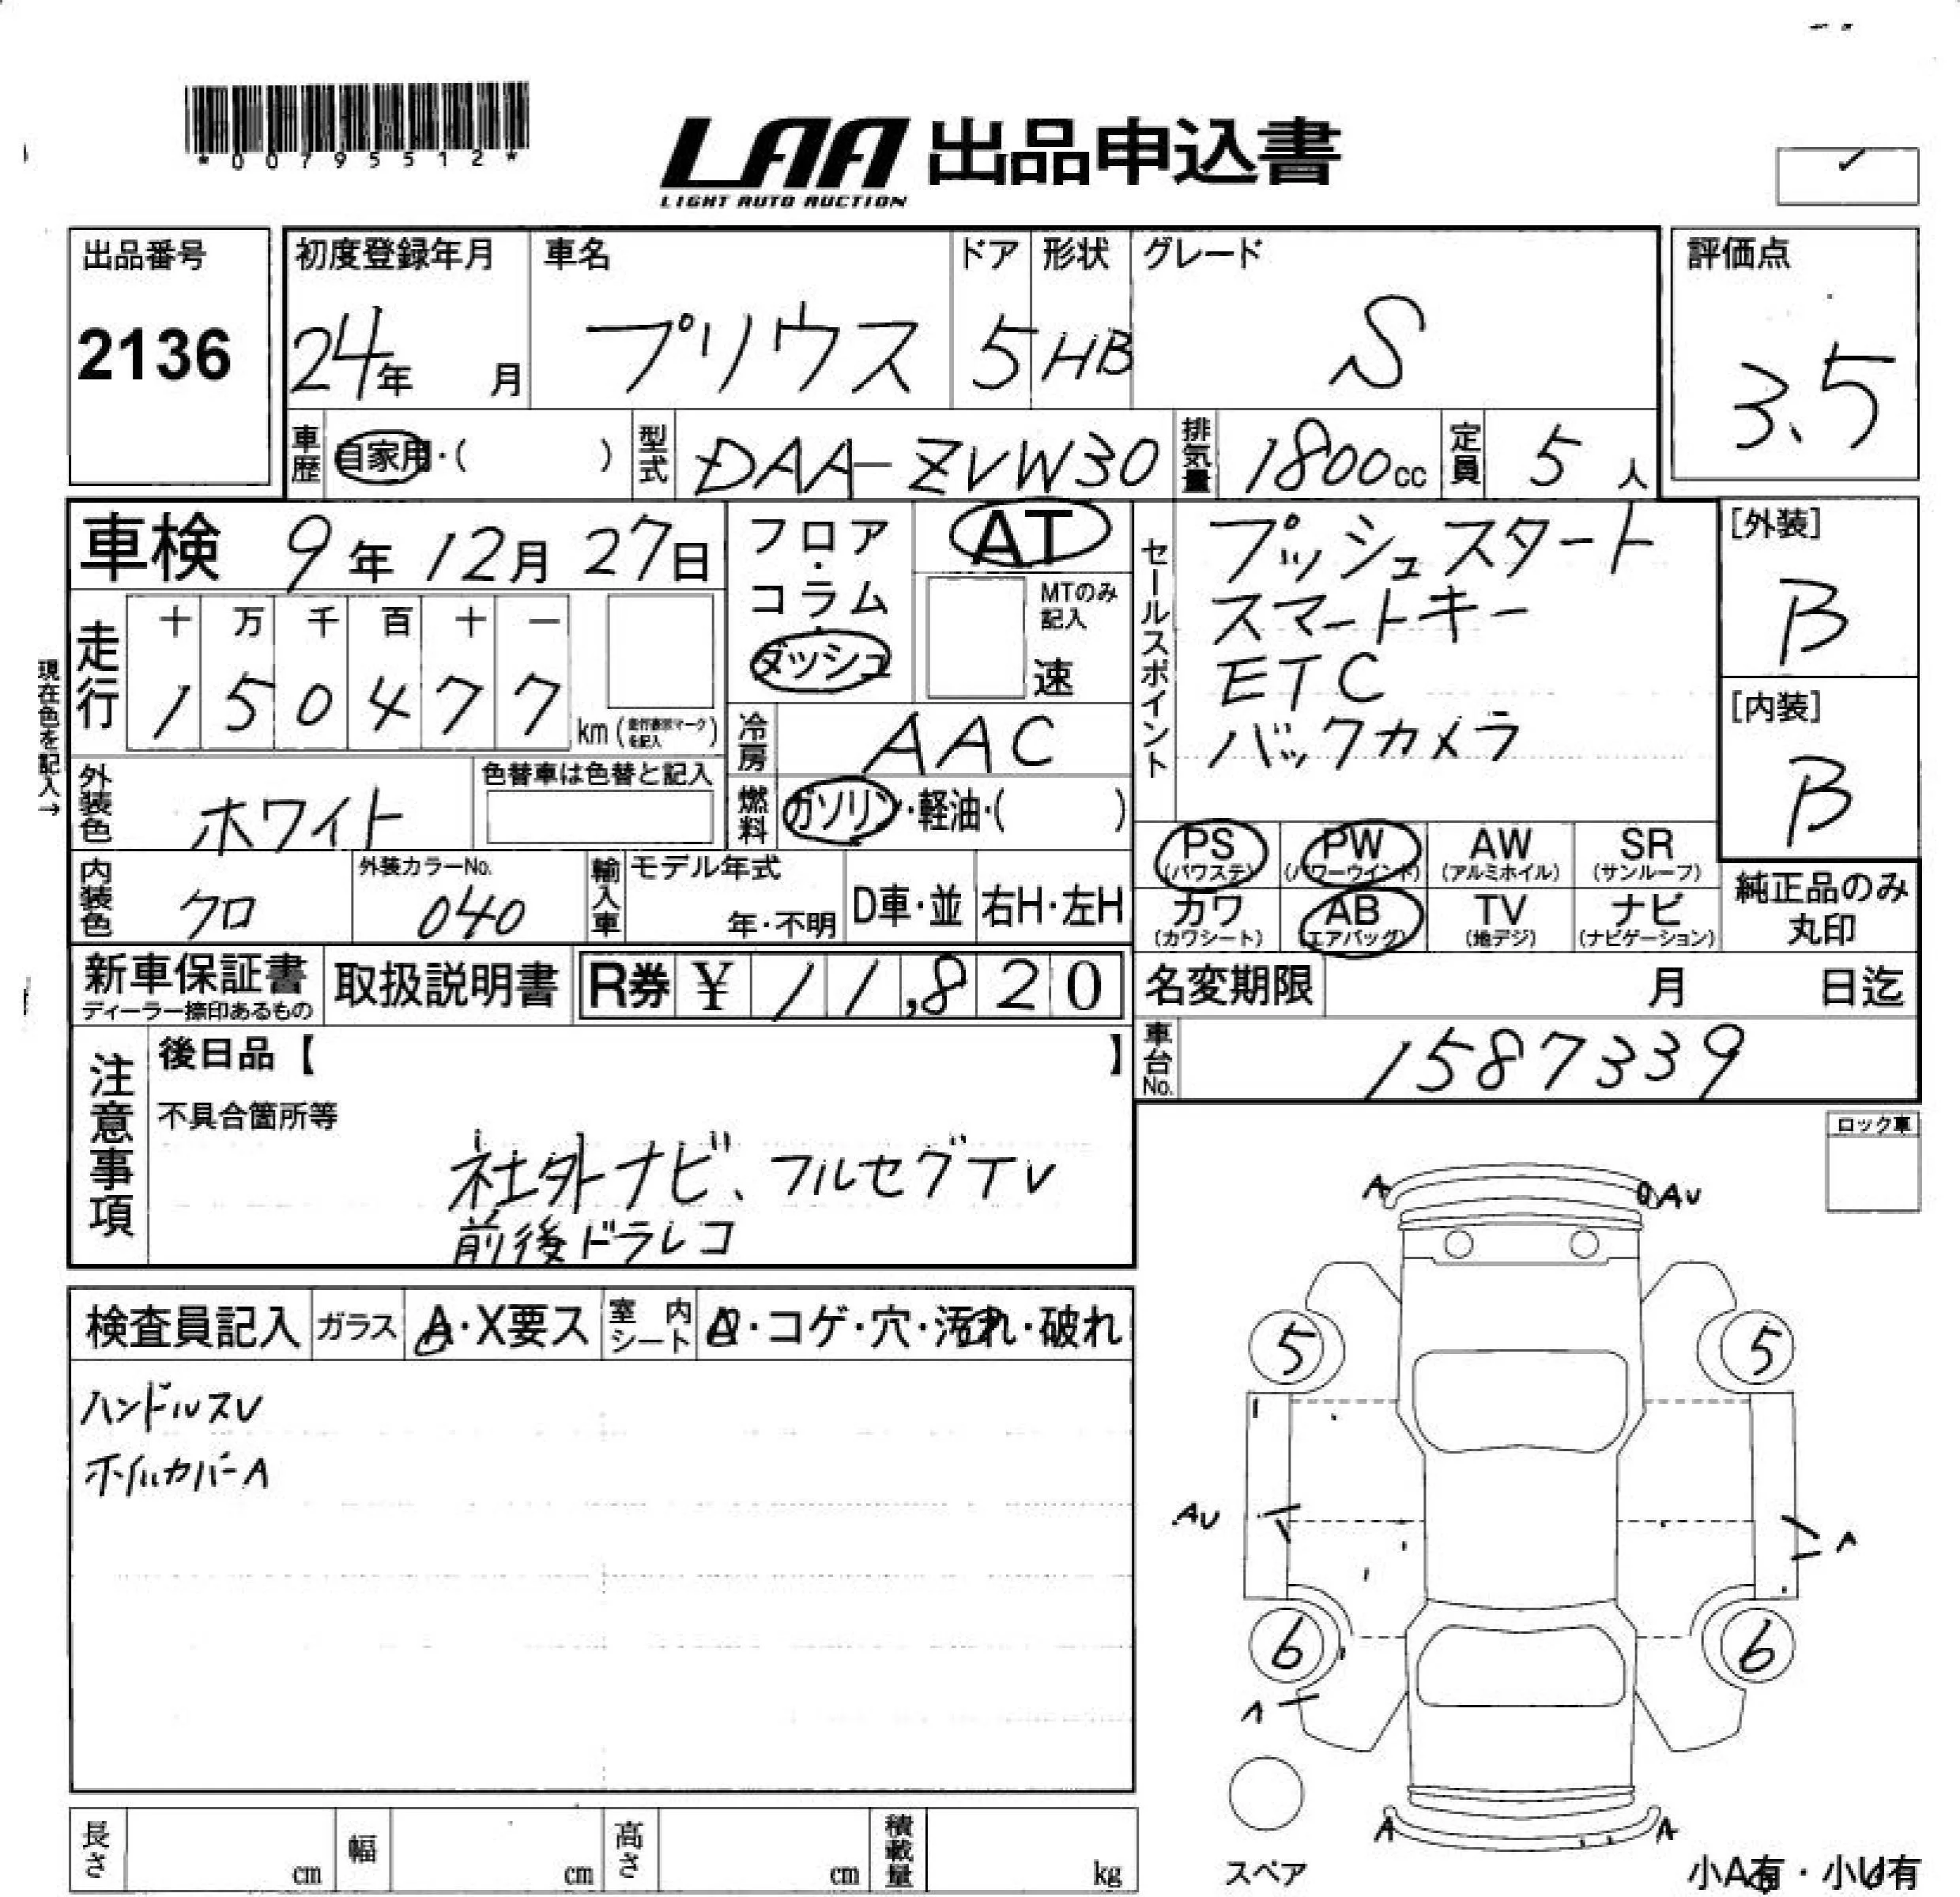 *00795512*
LAA 出品申込書
LIGHT AUTO AUCTION
出品番号
2136
初度登録年月
24年 月
車名
プリウス
ドア
5
形状
HB
グレード
S
評価点
3.5
車歴 自家用・( )
型式 DAA-ZVW30
排気量 1800cc
定員 5人
車検 9年 12月 27日
フロア・コラム・ダッシュ
AT
MTのみ記入
速
セールスポイント
プッシュスタート
スマートキー
ETC
バックカメラ
[外装]
B
[内装]
B
現在色を記入→
走行
十 万 千 百 十 一
1 5 0 4 7 7 km
冷房 AAC
外装色 ホワイト
色替車は色替と記入
燃料 ガソリン・軽油・( )
PS (パワステ)
PW (パワーウインド)
AW (アルミホイル)
SR (サンルーフ)
カワ (カワシート)
AB (エアバッグ)
TV (地デジ)
ナビ (ナビゲーション)
純正品のみ
丸印
内装色 クロ
外装カラーNo.
040
輸入車
モデル年式
年・不明
D車・並
右H・左H
新車保証書
ディーラー捺印あるもの
取扱説明書
R券 ¥ 11,820
名変期限 月 日迄
車台No. 1587339
注意事項
後日品【 】
不具合箇所等
社外ナビ、フルセグTV
前後ドラレコ
ロック車
検査員記入 ガラス A・X要ス 室内シート コゲ・穴・汚れ・破れ
ハンドルスレ
ホイルカバーA
A AU
5 5
AU A
6 6
A
A A
スペア
小A有・小U有
長さ cm 幅 cm 高さ cm 積載量 kg